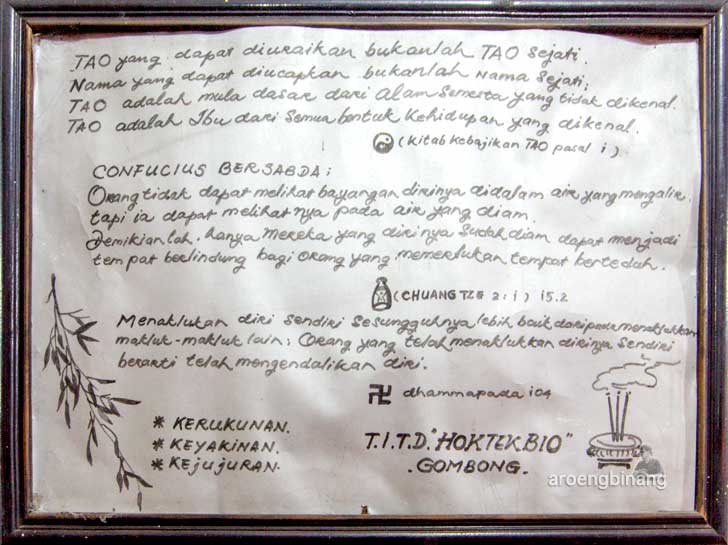 TAO yang dapat diuraikan bukanlah TAO sejati.
Nama yang dapat diucapkan bukanlah Nama sejati;
TAO adalah mula dasar dari Alam Semesta yang tidak dikenal.
TAO adalah Ibu dari Semua bentuk Kehidupan yang dikenal.
(Kitab Kebajikan TAO pasal i)
CONFUCIUS BERSABDA:
Orang tidak dapat melihat bayangan dirinya didalam air yang mengalir.
tapi ia dapat melihatnya pada air yang diam.
Demikianlah. hanya mereka yang dirinya sudah diam dapat menjadi
tempat berlindung bagi orang yang memerlukan tempat berteduh.
(CHUANG TZE 2: i) i5.2
Menaklukan diri sendiri sesungguhnya lebih baik daripada menaklukkan
makluk-makluk lain; Orang yang telah menaklukkan dirinya sendiri
berarti telah mengendalikan diri.
卍 dhammapada i04
* KERUKUNAN.
* KEYAKINAN.
* KEJUJURAN.
T.I.T.D."HOKTEKBIO"
.GOMBONG.
aroengbinang